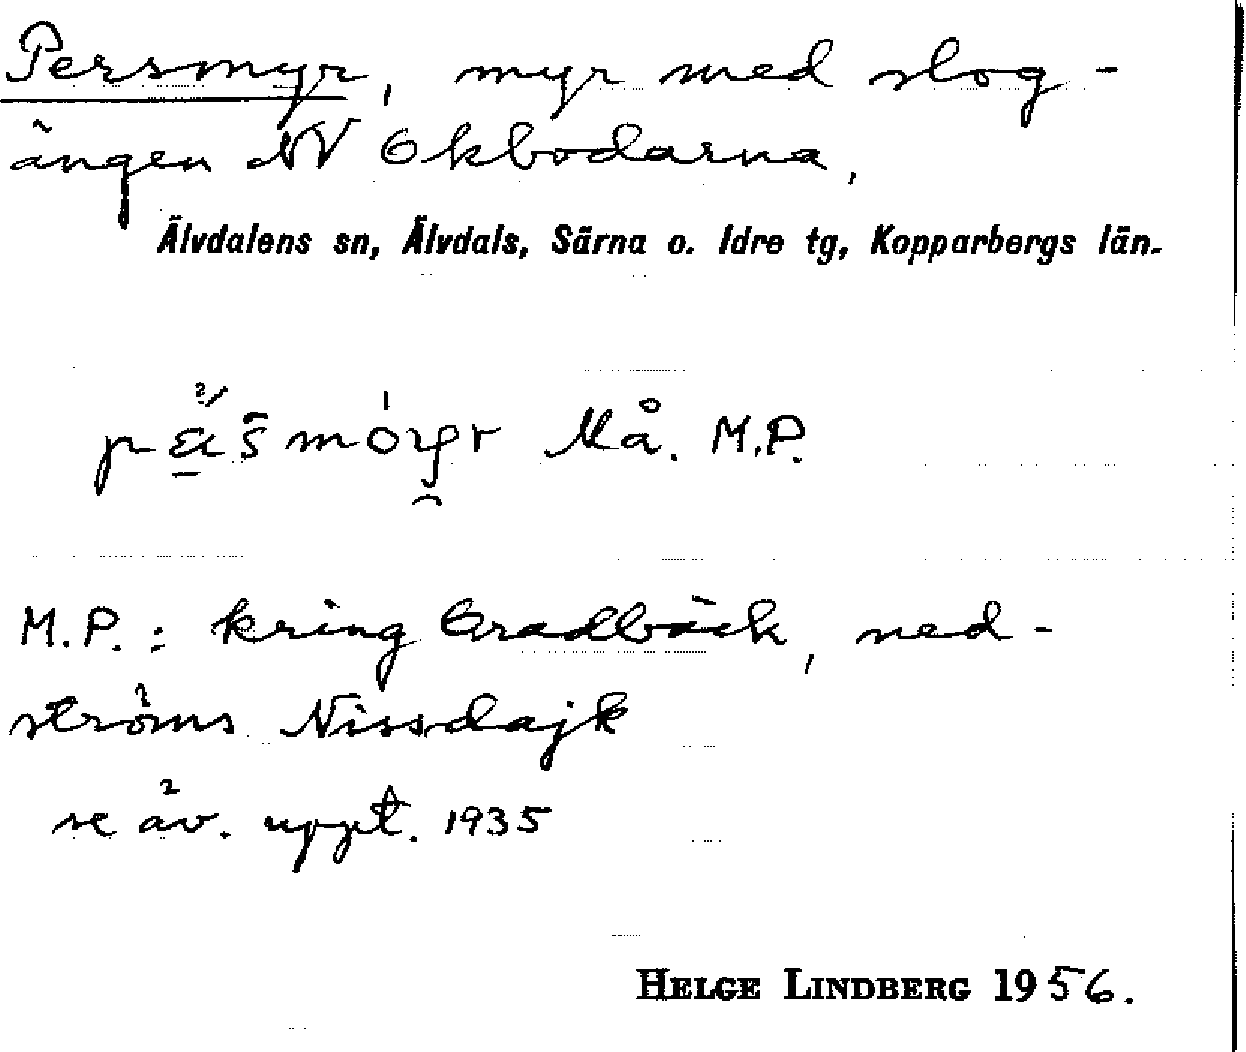 Persmyr, myr med slog-
ängen NV Okbodarna,
Älvdalens sn, Älvdals, Särna o. Idre tg, Kopparbergs län.
Må. M.P.
M.P.: kring Gradbäck, ned-
ströms Nissdajk
se äv. uppt. 1935
HELGE LINDBERG 1956.